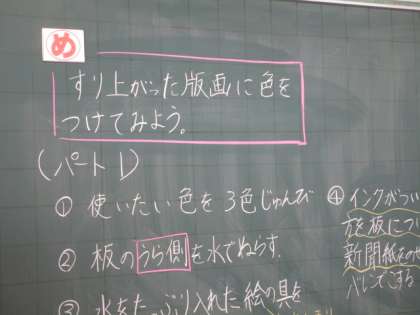 め
すり上がった版画に色を
つけてみよう。
(パート1)
① 使いたい色を3色じゅんび
② 板のうら側を水でぬらす。
③ 水をたっぷり入れた絵の具を
④ インクがつい
方を板につ
新聞紙をのせ
バレンでこする